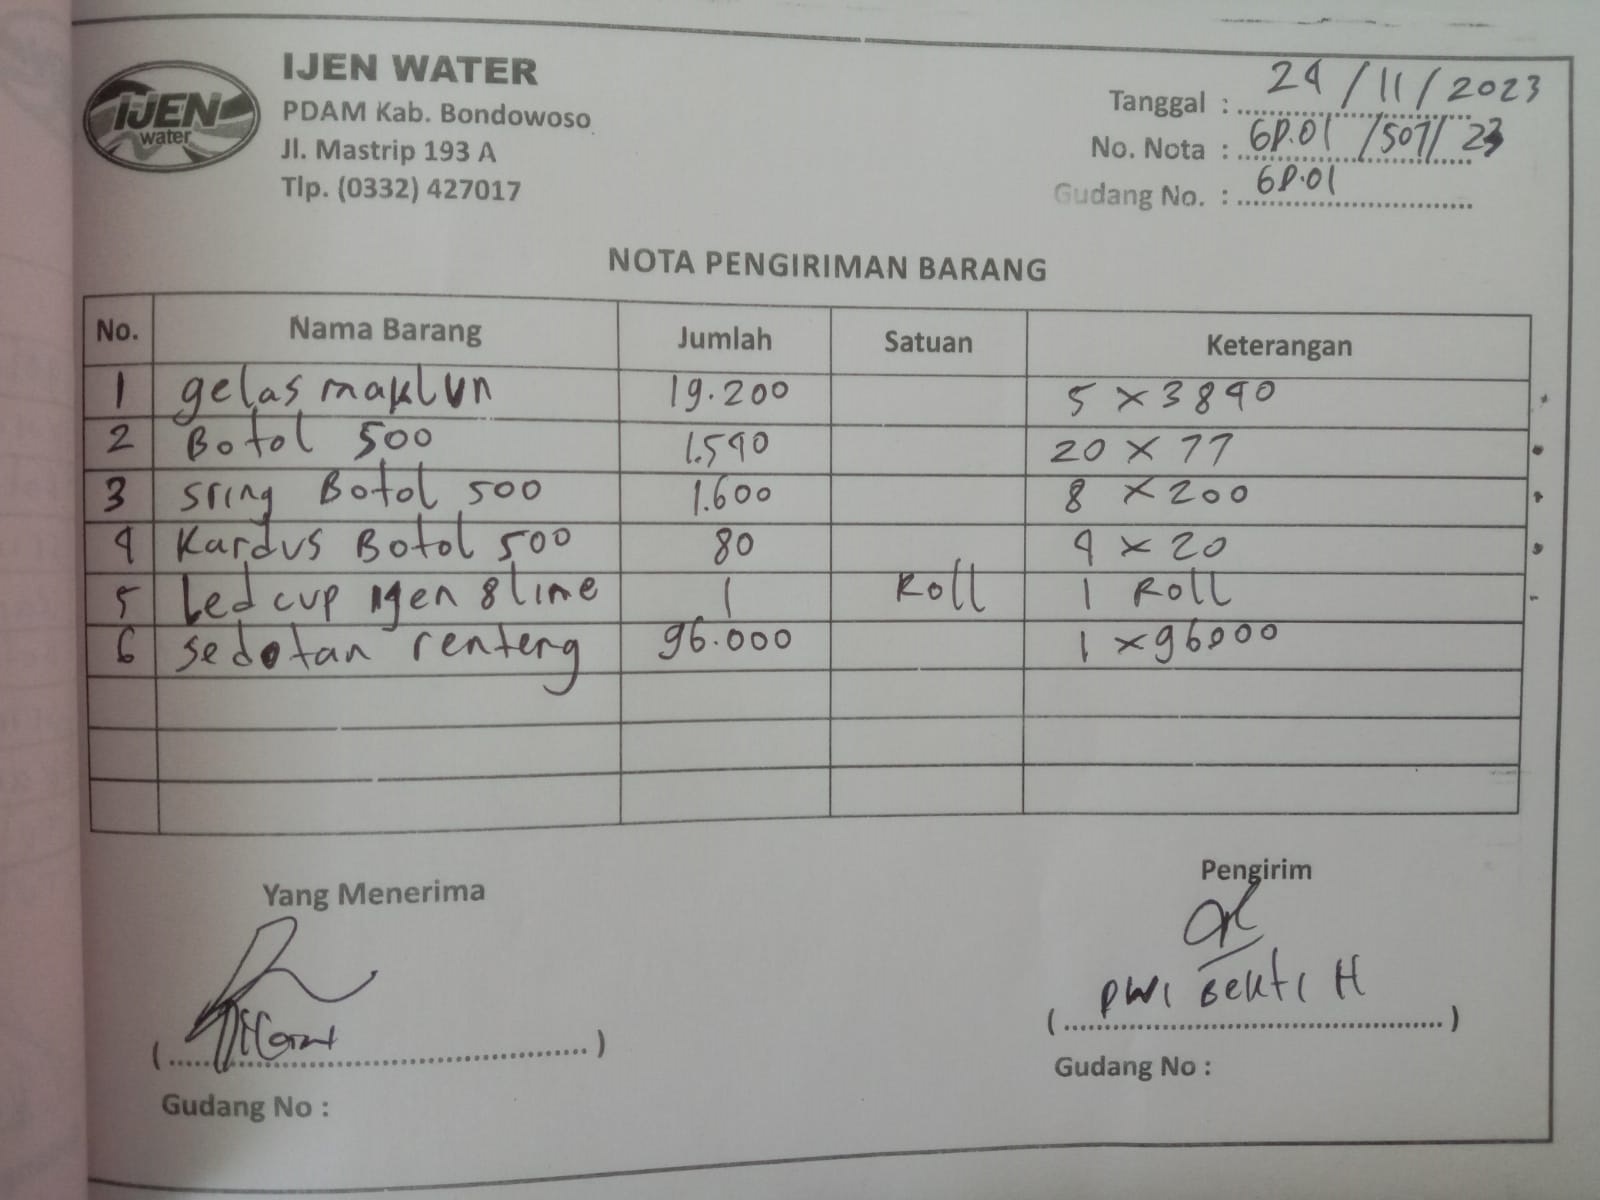 IJEN WATER
PDAM Kab. Bondowoso
Jl. Mastrip 193 A
Tlp. (0332) 427017
IJEN
water
Tanggal : 24 / 11 / 2023
No. Nota : GD.01 /507/ 23
Gudang No. : GD.01
NOTA PENGIRIMAN BARANG
No. Nama Barang Jumlah Satuan Keterangan
1 gelas maklun 19.200 5 x 3840
2 Botol 500 1.540 20 x 77
3 sring Botol 500 1.600 8 x 200
4 Kardus Botol 500 80 4 x 20
5 Led cup ijen 8 line 1 Roll 1 Roll
6 sedotan renteng 96.000 1 x 96000
Yang Menerima
Pengirim
DWI BEKTI H
(........................................)
(........................................)
Gudang No :
Gudang No :